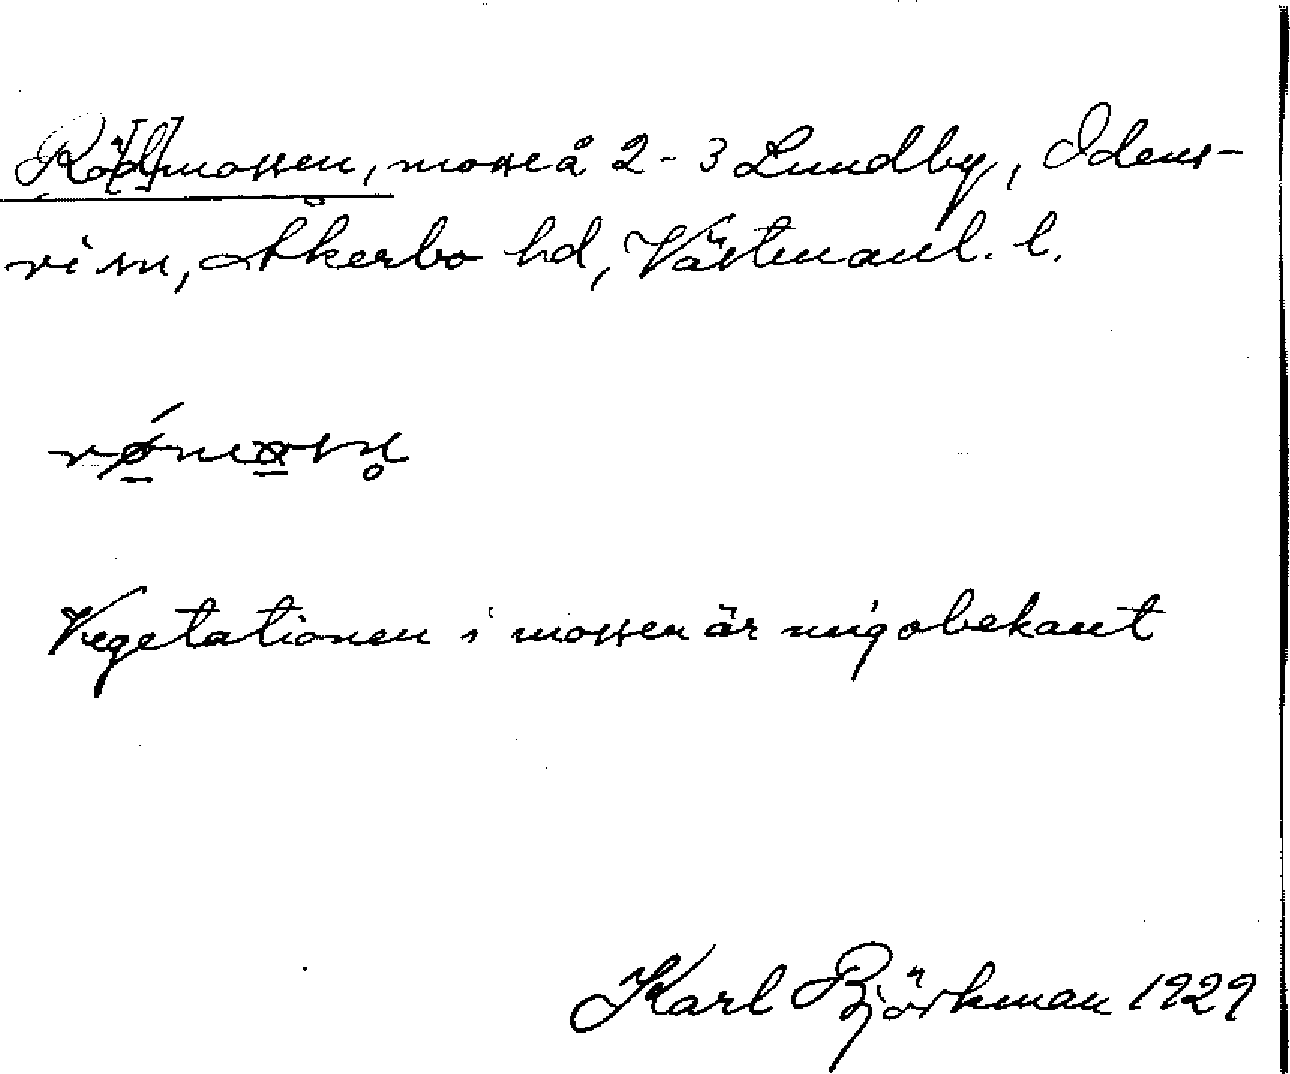 Rö[d]mossen, mosse å 2-3 Lundby, Odens-
vi sn, Åkerbo hd, Västmanl. l.
Vegetationen i mossen är mig obekant
Karl Björkman 1929